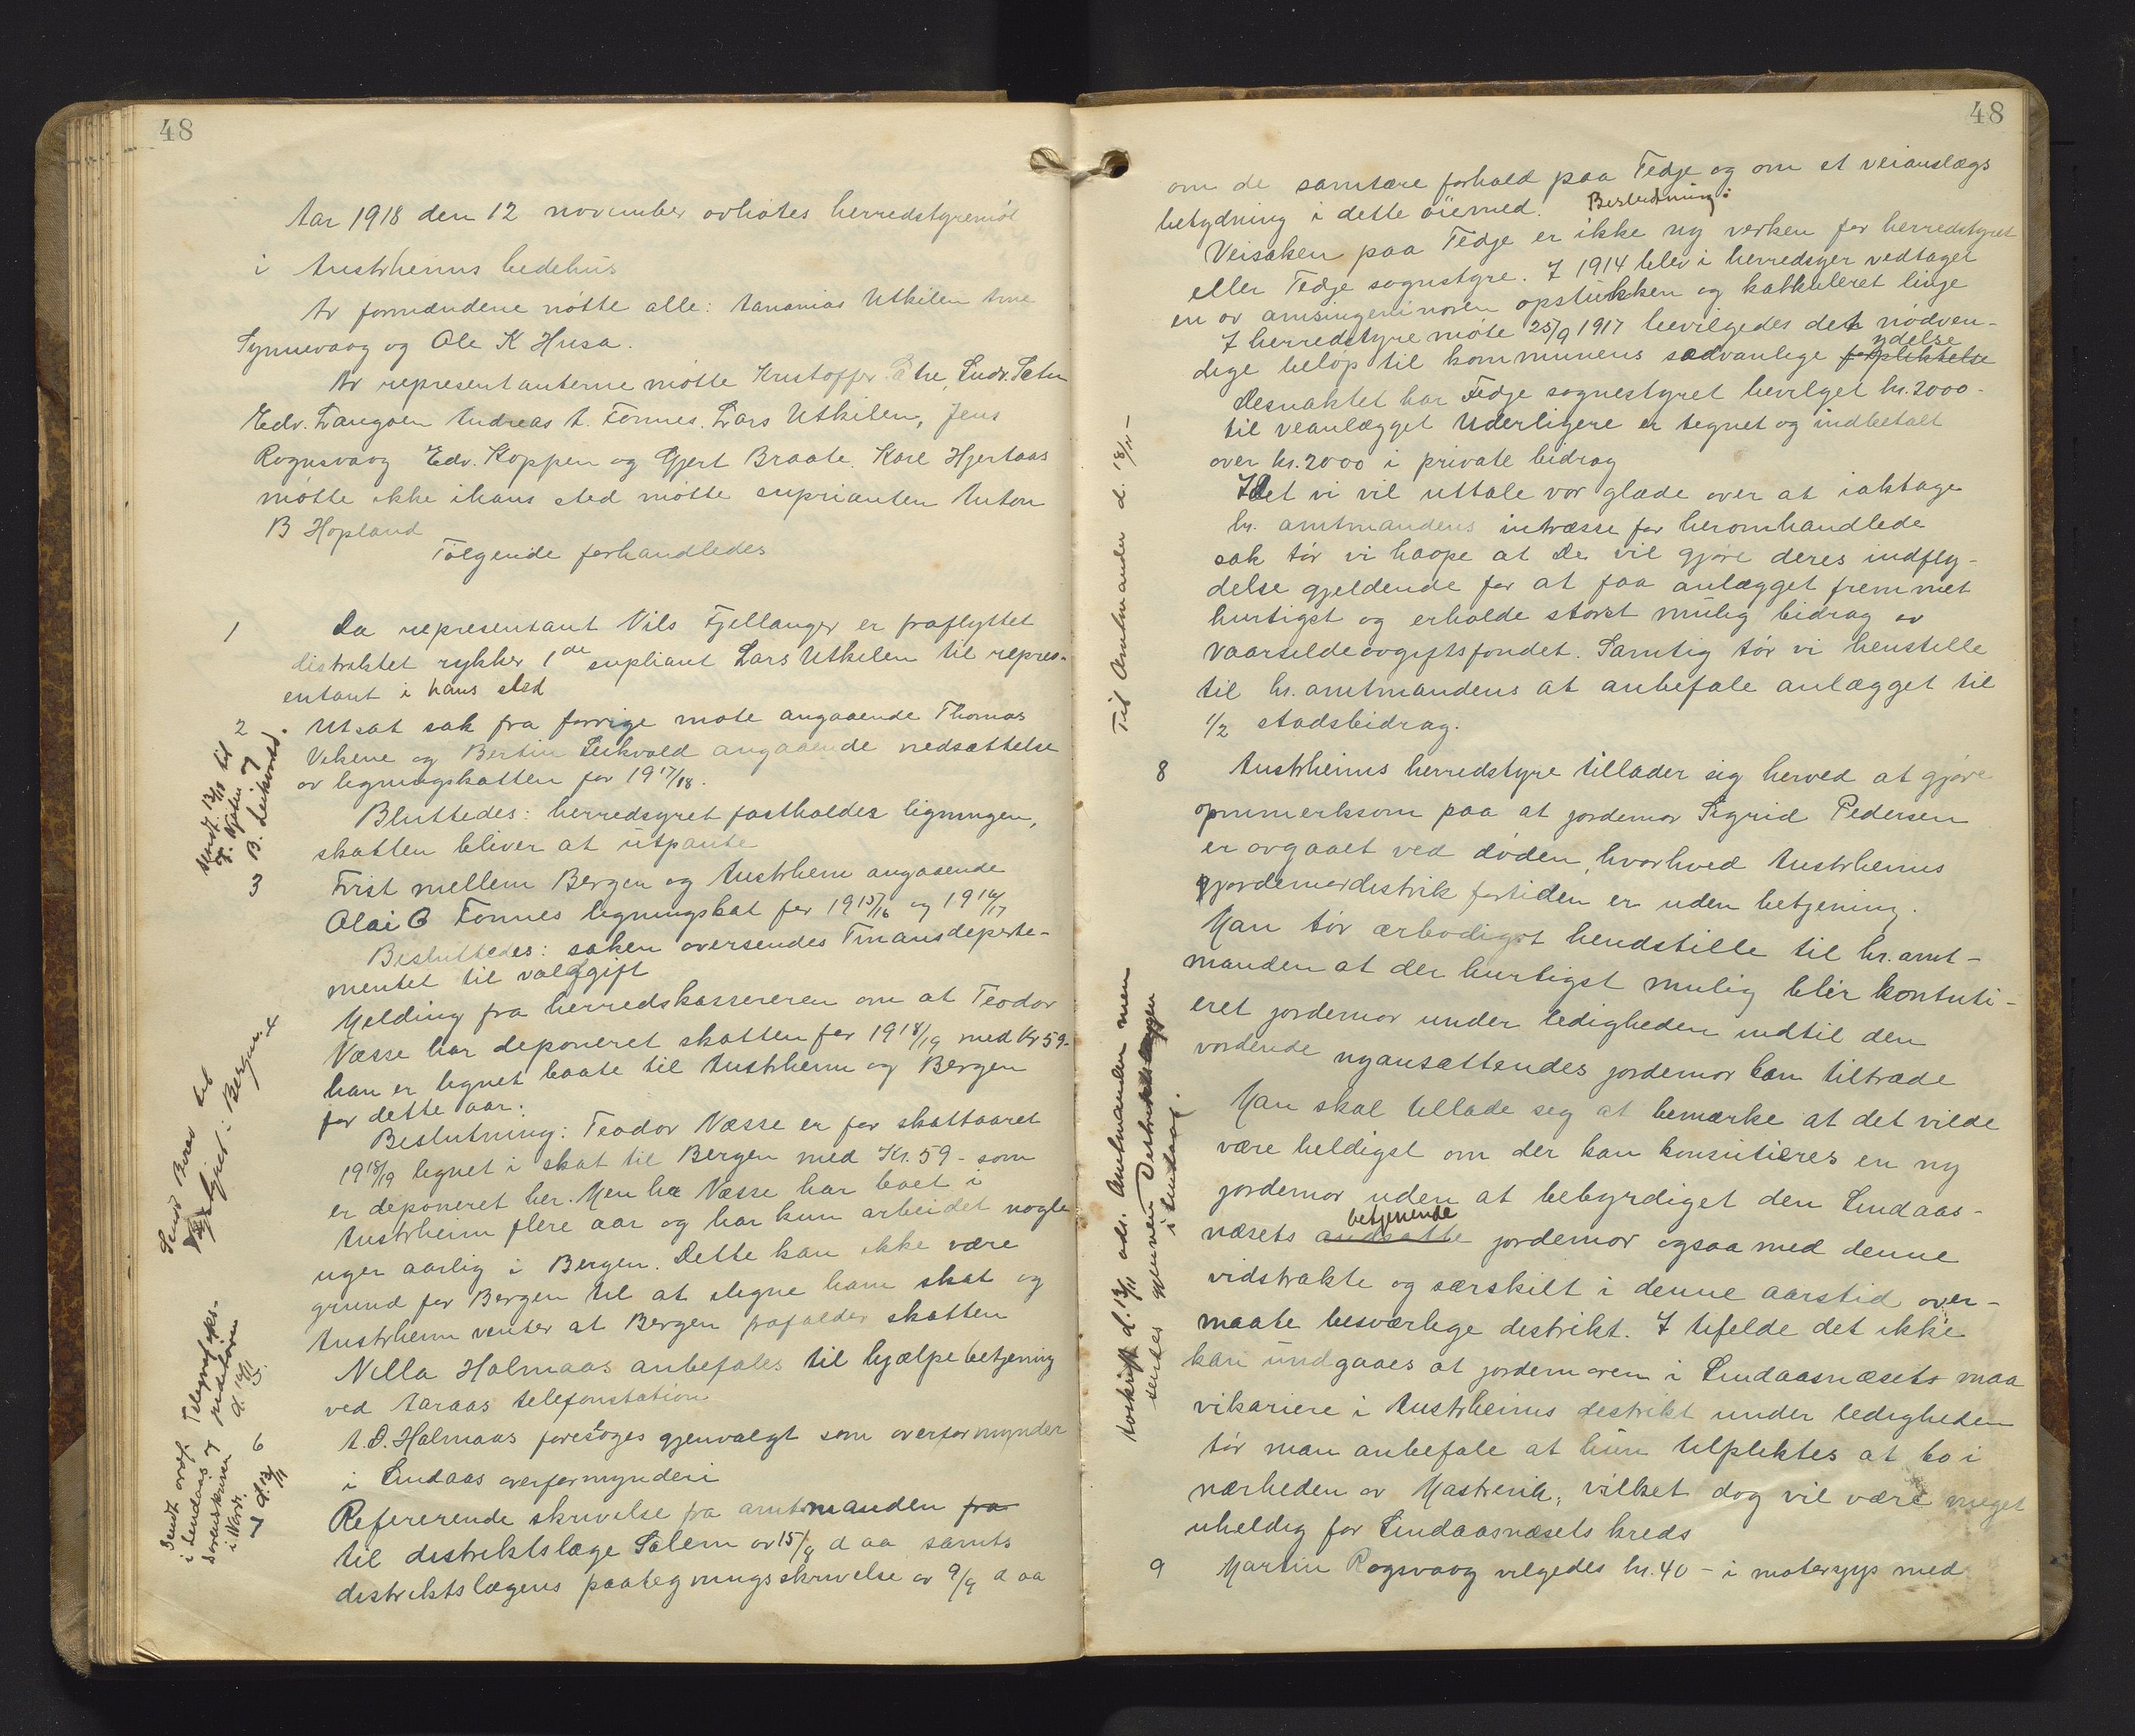 48
Aar 1918 den 12 november avhotes herredstyremöt
i Austrheims bedehus
Av formændene mötte alle: Ananias Utkilen Arne
Synnevaag og Ole K Husa.
Av representanterne mötte Kristoffer Ludv. Sætre
Edv. Langöen Andreas A. Fonnes. Lars Utkilen, Jens
Rognsvaag Edv. Koppen og Gjert Braate. Karl Hjertaas
mötte ikke i hans sted mötte suprianten Anton
B Hopland
Fölgende forhandledes
1 Da representant Nils Fjellanger er fraflyttet
distriktet rykker 1de supliant Lars Utkilen til repres-
entant i hans sted
2 Utsat sak fra forrige möte angaaende Thomas
Vekene og Bertin Leikvold angaaende nedsættelse
av ligningskatten for 1917/18.
Bluttedes: herredsyret fastholder ligningen,
skatten bliver at utpante
sendt 13/11 18 til
og
B. Leikvold.
3 Tvist mellem Bergen og Austrheim angaaende
Olai O Fonnes ligningskat for 1915/16 og 1916/17
Besluttedes: saken oversendes Finansdeparte-
mentet til valdgift
4 Melding fra herredskassereren om at Teodor
Næsse har deponeret skatten for 1918/19 med Kr 59-
han er lignet baate til Austrheim og Bergen
for dette aar.
Beslutning: Teodor Næsse er for skattaaret
1918/19 lignet i skat til Bergen med Kr. 59- som
er deponeret her. Men ha Næsse har boet i
Austrheim flere aar og har kun arbeidet nogle
uger aarlig i Bergen. Dette kan ikke være
grund for Bergen til at ilegne ham skat og
Austrheim venter at Bergen frafalder skatten
Sendt Brev til
i Bergen
5 Nilla Halmaas anbefales til hjælpebetjening
ved Aaraas telefonstation
6 A. O. Halmaas foresloges gjenvalgt som overformynder
i Lindaas overformynderi
Sendt avsk. Telegrafinks-
i Lindaas og
Sorenskriver
i Nordh.
d. 14/11
7 d. 13/11
Refererende skrivelse fra amtsmanden fra
til distriktslæge Salem av 15/8 d aa samts
distriktslægens paategningsskrivelse av 9/9 d aa
48
om de samtære forhold paa Fedje og om et veianslægs
betydning i dette öiemed. Beslutning:
Veisaken paa Fedje er ikke ny verken for herredstyret
eller Fedje sognstyre. I 1914 blev i herredsyer vedtaget
en av amsingeniinoren opstukken og kalkuleret linje
I herredstyremöte 25/9 1917 bevilgedes det nödven-
dige belöp til kommunens sædvanlige forpliktelse ydelse
Desuaktet har Fedje sognestyret bevilget kr. 2000-
til veanlægget Uderligere er tegnet og indbetalt
over kr. 2000 i private bidrag
Idet vi vil uttale vor glæde over at iaktage
hr. amtmandens intræsse for heromhandlede
sak tör vi haape at De vil gjöre deres indfly-
delse gjeldende for at faa anlægget fremmet
hurtigst og erholde störst mulig bidrag av
Vaarsildeavgiftsfondet. Samtig tör vi henstille
til hr. amtmandens at anbefale anlægget til
1/2 stadsbidrag.
Til Amtmanden d. 18/11 -
8 Austrheims herredstyre tillader sig herved at gjöre
opmmerksom paa at jordemor Sigrid Pedersen
er avgaaet ved döden, hvorhved Austrheims
gjordemordistrik fortiden er uden betjening.
Man tör ærbödigst hendstille til hr. amt-
manden at der hurtigst mulig blir kontuti-
eret jordemor under ledigheden indtil den
vordende nyansættendes jordemor kan tiltræde
Man skal tillade seg at bemærke at det vilde
være heldigst om der kan konsitieres en ny
jordemor uden at bebyrdiget den Lindaas-
næsets ansatte betjenende jordemor ogsaa med denne
vidstrakte og særskilt i denne aarstid over-
maate besværlige distrikt. I tifelde det ikke
kan undgaaes at jordemoren i Lindaasnæsets maa
vikariere i Austrheims distrikt under ledigheden
tör man anbefale at hun tilpliktes at bo i
nærheden av Mastrevik, vilket dog vil være meget
uheldig for Lindaasnæsets kreds
Avskrift d. 13/11 adr. Amtmanden men
sendes gjennem Distriktslægen
i Lindaas.
9 Martin Rogsvaag vilgedes kr. 40 - i motersyys med